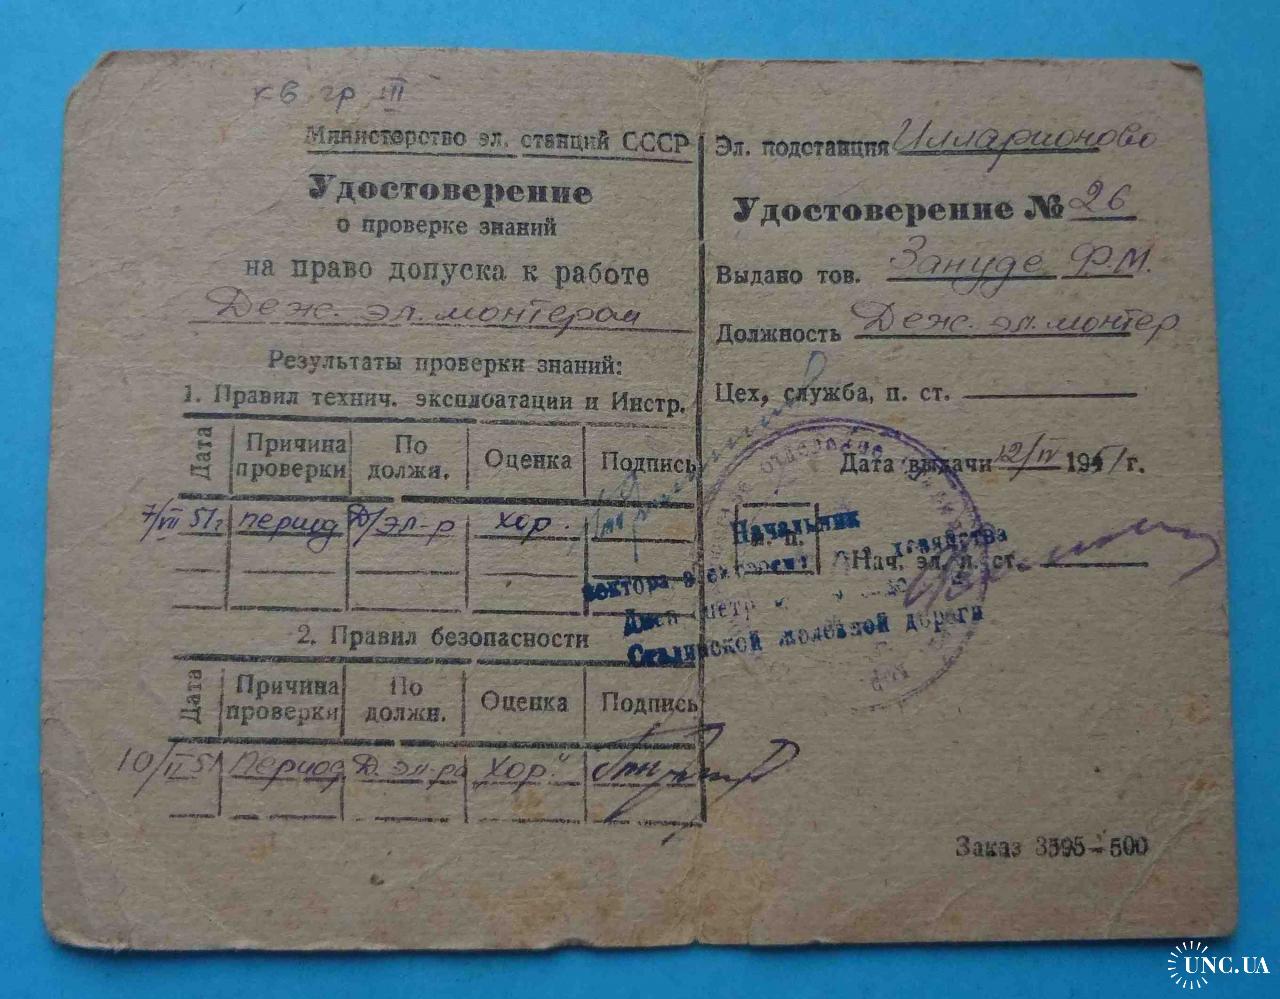 кв гр III
Министерство эл. станций СССР
Удостоверение
о проверке знаний
на право допуска к работе
Деж. эл. монтером
Результаты проверки знаний:
1. Правил технич. эксплоатации и Инстр.
Дата Причина проверки По должн. Оценка Подпись
7/VII 51г период Д/эл-р хор.
2. Правил безопасности
Дата Причина проверки По должн. Оценка Подпись
10/II 51 Период Д. эл-ра Хор."
Эл. подстанция Илларионово
Удостоверение № 26
Выдано тов. Зануде Ф.М.
Должность Деж. эл. монтер
Цех, служба, п. ст.
Дата выдачи 12/IV 1951 г.
М. П.
Нач. эл. п. ст.
Начальник
сектора хозяйства
Сталинской железной дороги
Заказ 3595-500
UNC.UA